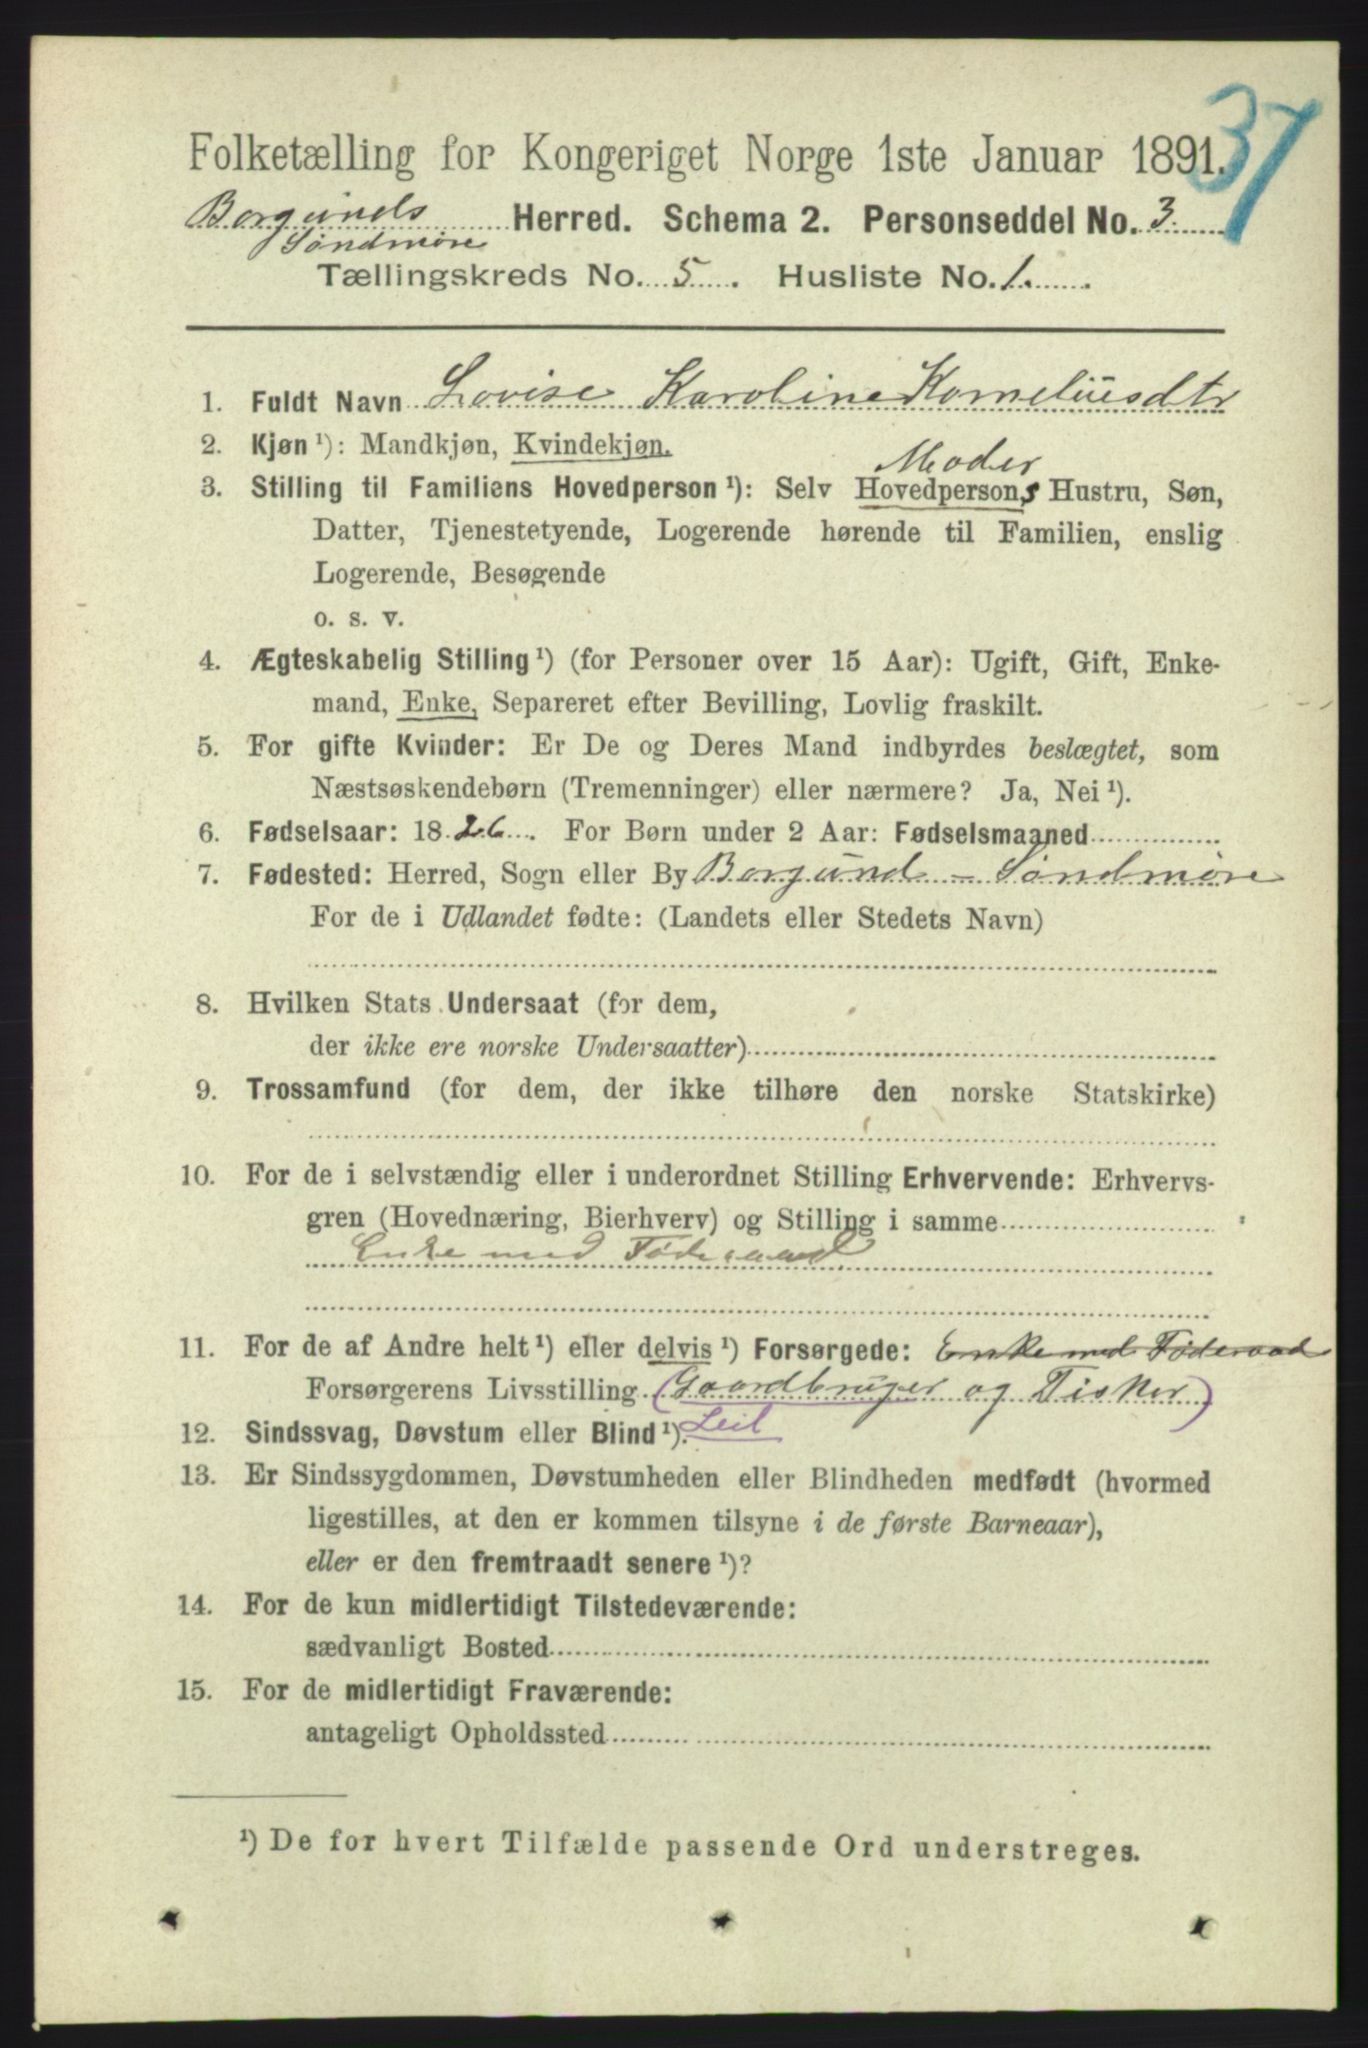 37
Folketælling for Kongeriget Norge 1ste Januar 1891.
Borgunds Herred. Schema 2. Personseddel No. 3
Søndmøre
Tællingskreds No. 5. Husliste No. 1.
1. Fuldt Navn Lovise Karoline Korneliusdtr
2. Kjøn ¹): Mandkjøn, Kvindekjøn.
Moder
3. Stilling til Familiens Hovedperson ¹): Selv Hovedpersons Hustru, Søn,
Datter, Tjenestetyende, Logerende hørende til Familien, enslig
Logerende, Besøgende
o. s. v.
4. Ægteskabelig Stilling ¹) (for Personer over 15 Aar): Ugift, Gift, Enke-
mand, Enke, Separeret efter Bevilling, Lovlig fraskilt.
5. For gifte Kvinder: Er De og Deres Mand indbyrdes beslægtet, som
Næstsøskendebørn (Tremenninger) eller nærmere? Ja, Nei ¹).
6. Fødselsaar: 1826. For Børn under 2 Aar: Fødselsmaaned
7. Fødested: Herred, Sogn eller By Borgund - Søndmøre
For de i Udlandet fødte: (Landets eller Stedets Navn)
8. Hvilken Stats Undersaat (for dem,
der ikke ere norske Undersaatter)
9. Trossamfund (for dem, der ikke tilhøre den norske Statskirke)
10. For de i selvstændig eller i underordnet Stilling Erhvervende: Erhvervs-
gren (Hovednæring, Bierhverv) og Stilling i samme
Enke med Føderaad
11. For de af Andre helt ¹) eller delvis ¹) Forsørgede: Enke med Føderaad
Forsørgerens Livsstilling (Gaardbruger og Fisker)
12. Sindssvag, Døvstum eller Blind ¹). Leil
13. Er Sindssygdommen, Døvstumheden eller Blindheden medfødt (hvormed
ligestilles, at den er kommen tilsyne i de første Barneaar),
eller er den fremtraadt senere ¹)?
14. For de kun midlertidigt Tilstedeværende:
sædvanligt Bosted
15. For de midlertidigt Fraværende:
antageligt Opholdssted
¹) De for hvert Tilfælde passende Ord understreges.